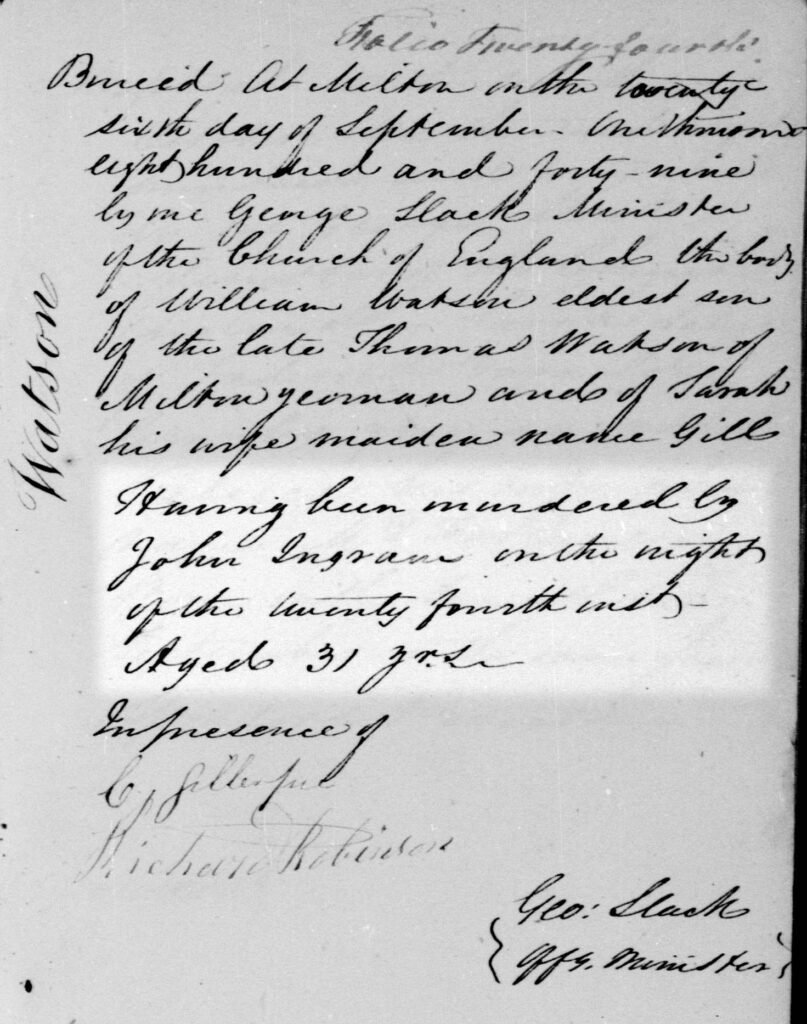 Folio Twenty fourth.
Buried At Milton on the twenty
sixth day of September – One thousand
eight hundred and forty-nine
by me George Slack Minister
of the Church of England the body
of William Watson eldest son
of the late Thomas Watson of
Milton yeoman and of Sarah
his wife maiden name Gill
Watson
Having been murdered by
John Ingram on the night
of the twenty fourth inst –
Aged 31 yrs
In presence of
C. Gillespie
Richard Robinson
Geo: Slack
Offg. Minister